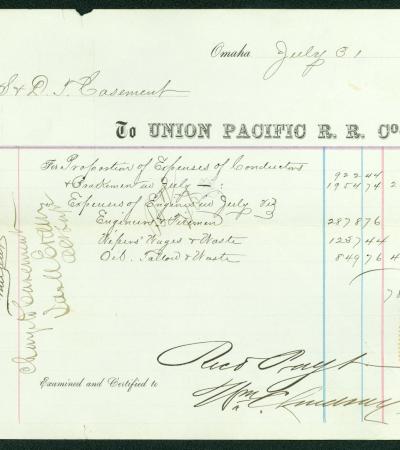 Omaha July 31
S & D. T. Casement
To UNION PACIFIC R. R. Co
For Proportion of Expenses of Conductors 922 44
& Brakemen in July 1954 74 2
Expenses of Engines in July viz
Engineers & Firemen 2878 76
Wipers' Wages & Waste 1237 44
Oil, Tallow & Waste 849 76 4
78
Recd Payt
Wm. Lindsay
Examined and Certified to
Charge to Casement